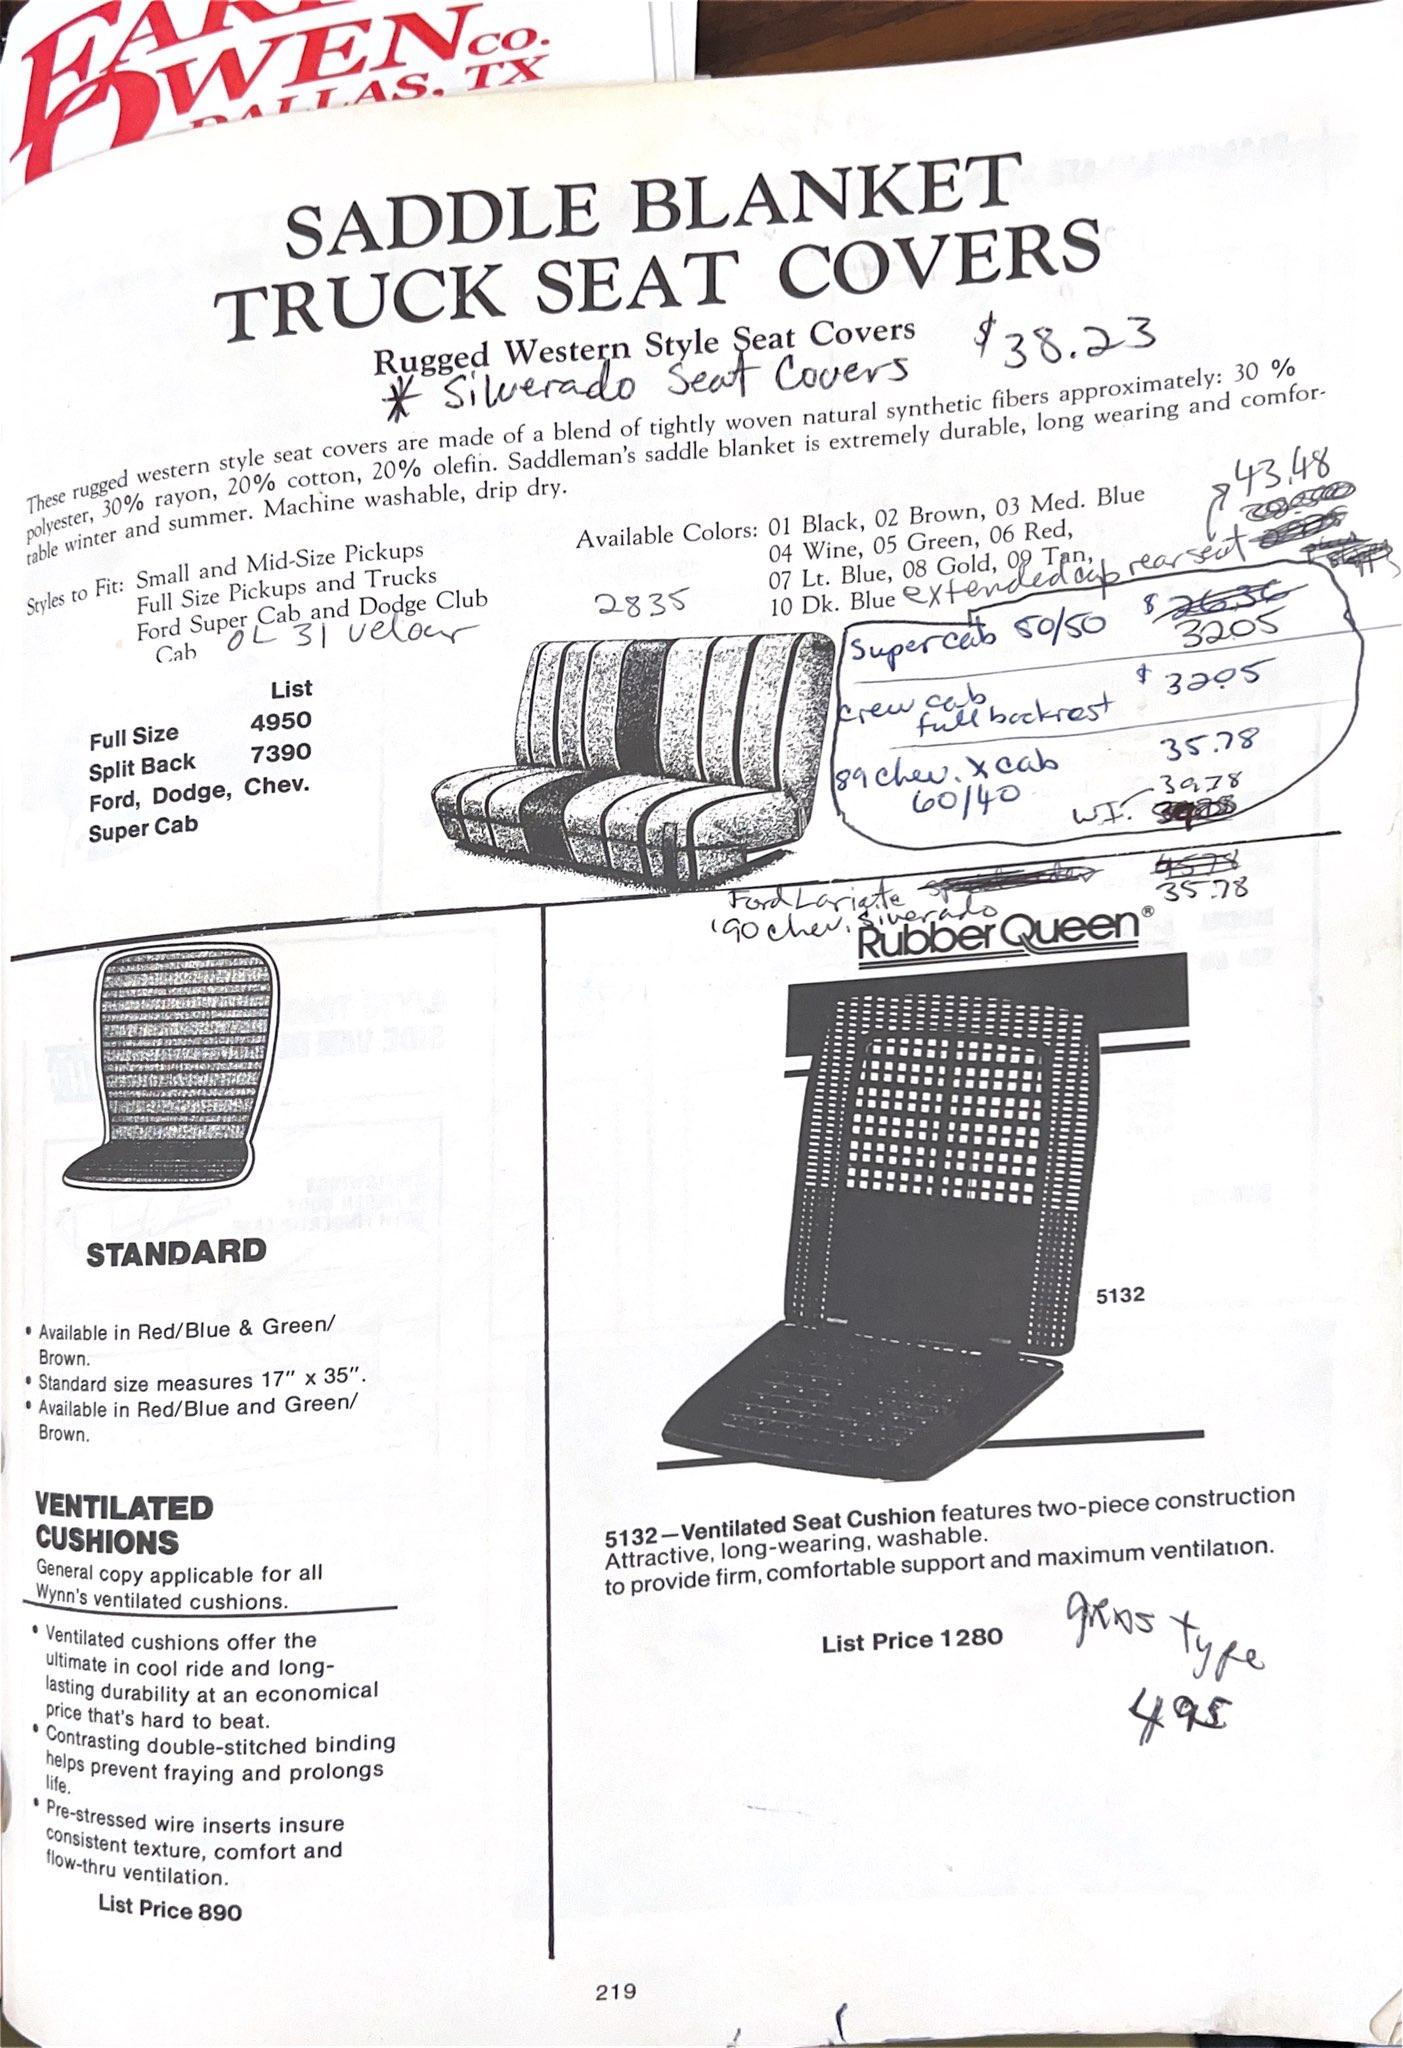 OWEN CO.
DALLAS, TX
SADDLE BLANKET
TRUCK SEAT COVERS
Rugged Western Style Seat Covers
$38.23
* Silverado Seat Covers
These rugged western style seat covers are made of a blend of tightly woven natural synthetic fibers approximately: 30 %
polyester, 30% rayon, 20% cotton, 20% olefin. Saddleman's saddle blanket is extremely durable, long wearing and comfor-
table winter and summer. Machine washable, drip dry.
43.48
Styles to Fit: Small and Mid-Size Pickups
Full Size Pickups and Trucks
Ford Super Cab and Dodge Club
Cab
OL 31 velour
Available Colors: 01 Black, 02 Brown, 03 Med. Blue
04 Wine, 05 Green, 06 Red,
07 Lt. Blue, 08 Gold, 09 Tan,
10 Dk. Blue
extended cap rear seat
2835
Super cab 50/50 $ 2636
3205
crew cab $ 3205
full backrest
89 chev. x cab 35.78
60/40
W.I. 39.78
List
Full Size 4950
Split Back 7390
Ford, Dodge, Chev.
Super Cab
4578
Ford Lariate 35.78
'90 chev. Silverado
RubberQueen®
STANDARD
• Available in Red/Blue & Green/
Brown.
• Standard size measures 17" x 35".
• Available in Red/Blue and Green/
Brown.
VENTILATED
CUSHIONS
General copy applicable for all
Wynn's ventilated cushions.
• Ventilated cushions offer the
ultimate in cool ride and long-
lasting durability at an economical
price that's hard to beat.
• Contrasting double-stitched binding
helps prevent fraying and prolongs
life.
• Pre-stressed wire inserts insure
consistent texture, comfort and
flow-thru ventilation.
List Price 890
5132
5132—Ventilated Seat Cushion features two-piece construction
Attractive, long-wearing, washable.
to provide firm, comfortable support and maximum ventilation.
List Price 1280
grass type
495
219